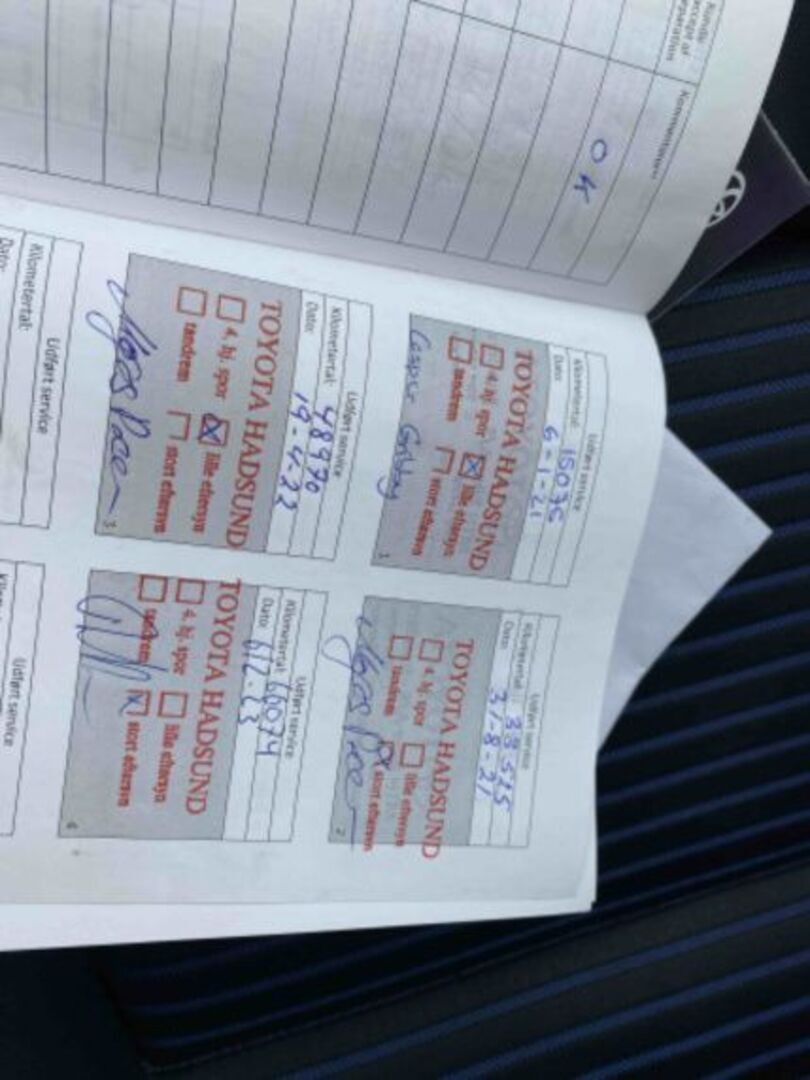 Kommentarer:
OK
Udført service
Kilometertal: 15035
Dato: 6-1-21
TOYOTA HADSUND
4. hj. spor
lille eftersyn
tandrem
stort eftersyn
1
Udført service
Kilometertal: 33525
Dato: 31-8-21
TOYOTA HADSUND
4. hj. spor
lille eftersyn
tandrem
stort eftersyn
2
Udført service
Kilometertal: 48970
Dato: 19-4-22
TOYOTA HADSUND
4. hj. spor
lille eftersyn
tandrem
stort eftersyn
3
Udført service
Kilometertal: 60074
Dato:
TOYOTA HADSUND
4. hj. spor
lille eftersyn
tandrem
stort eftersyn
4
Udført service
Kilometertal:
Dato:
Udført service
Kilometertal: